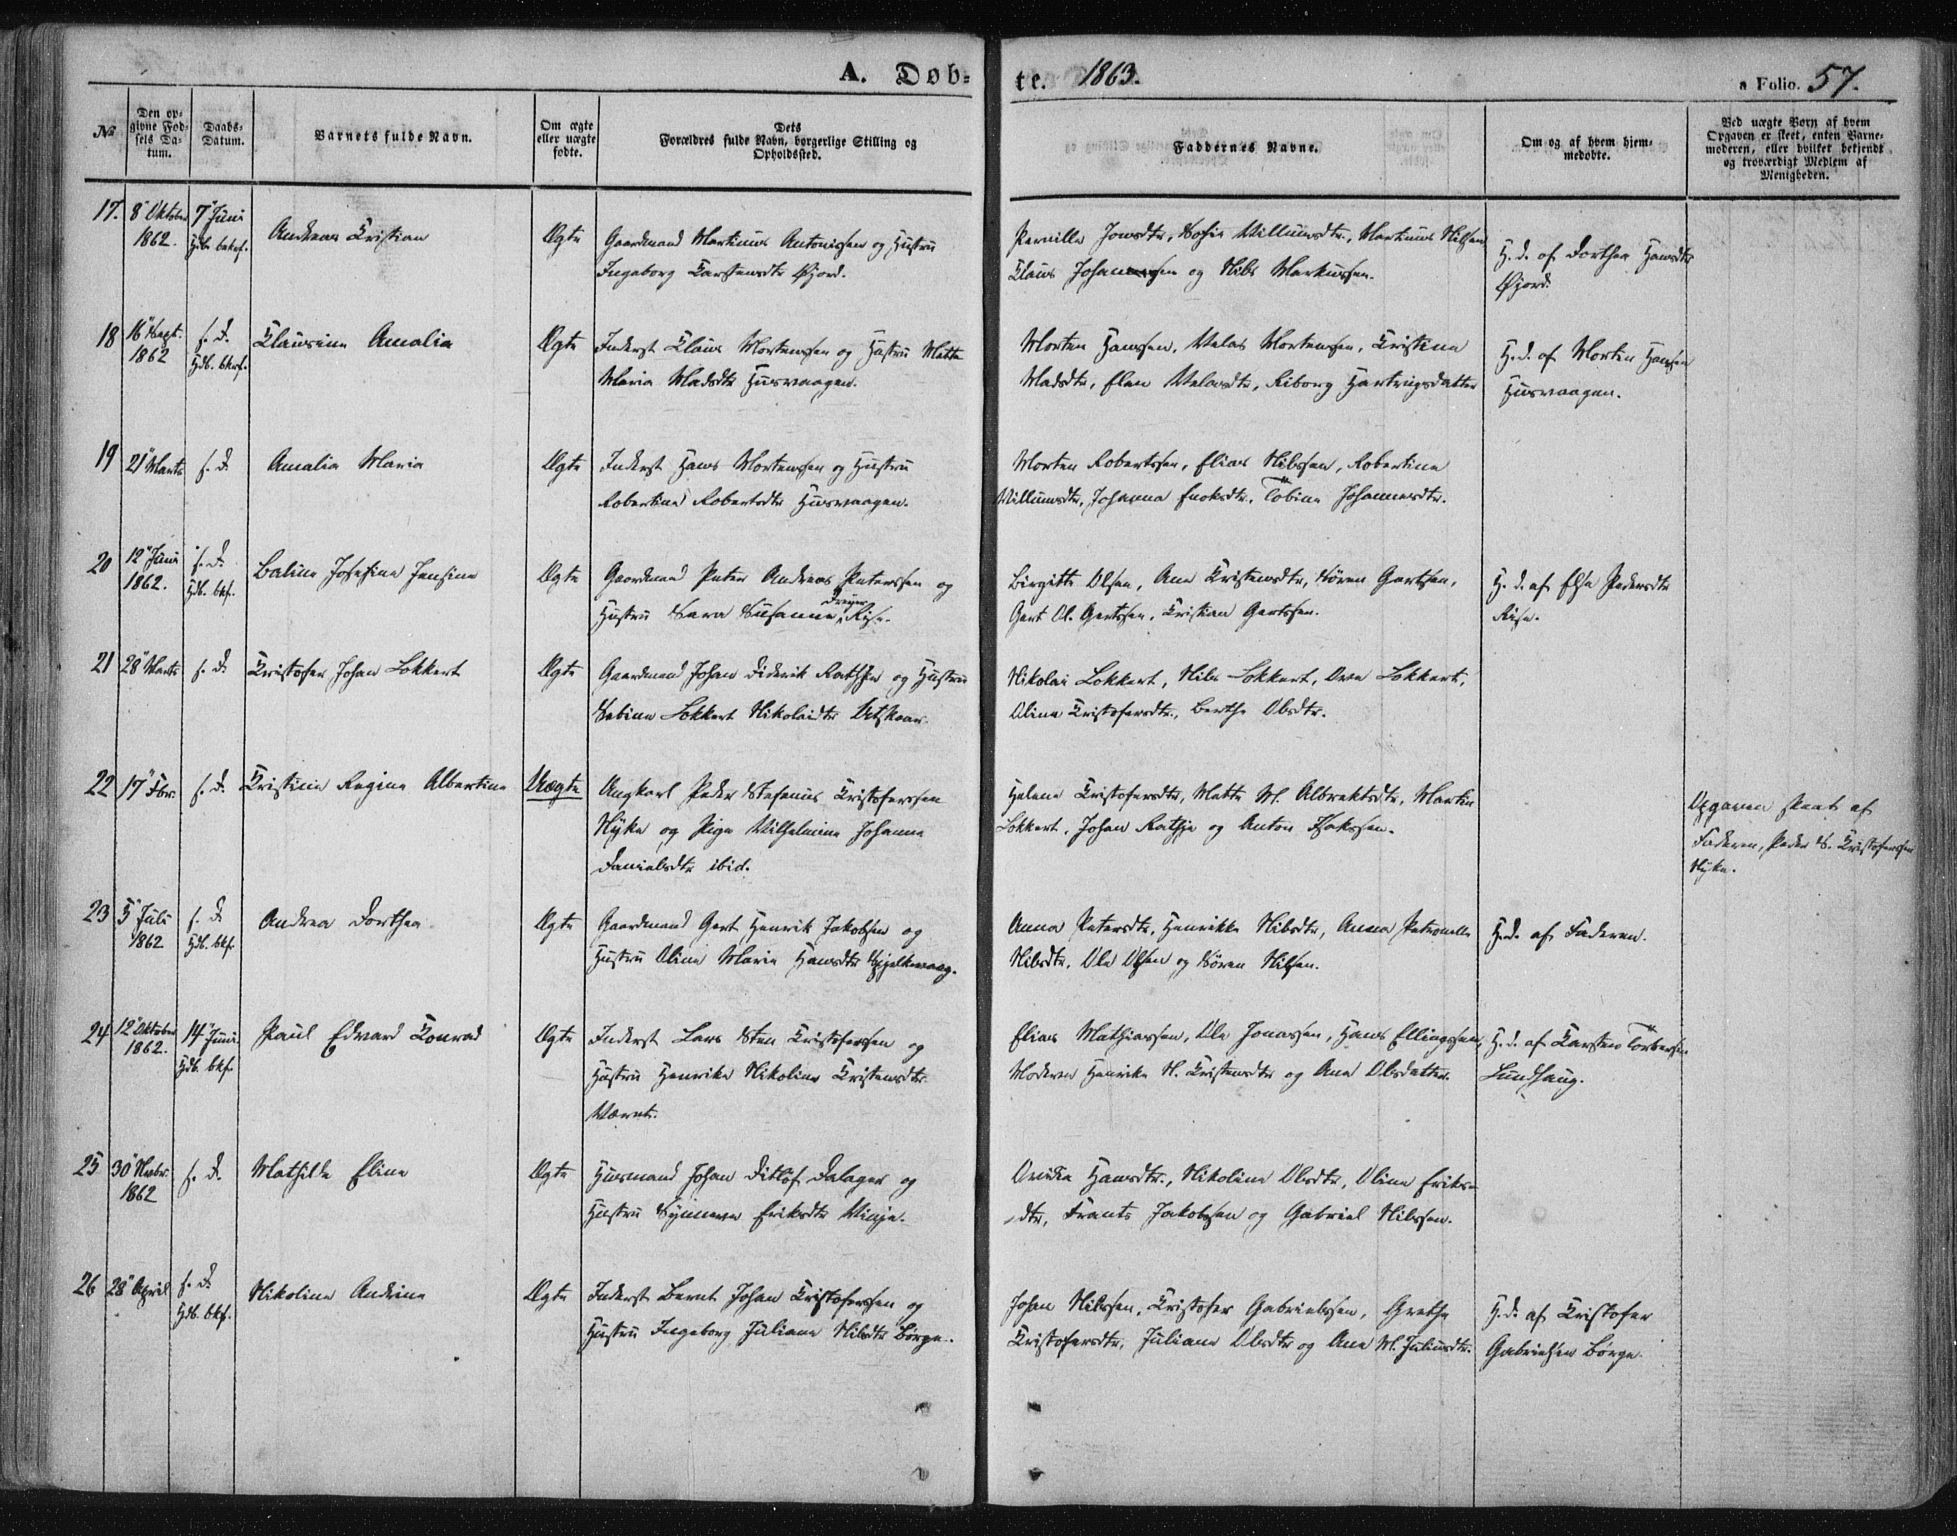 A. Døb-
te. 1863.
a Folio. 57.
No
Den op-
givne Fød-
sels Da-
tum.
Daabs-
Datum.
Barnets fulde Navn.
Om ægte
eller uægte
fødte.
Dets
Forældres fulde Navn, borgerlige Stilling og
Opholdssted.
Faddernes Navne.
Om og af hvem hjem-
medøbte.
Ved uægte Børn af hvem
Opgaven er skeet, enten Barne-
moderen, eller hvilket bekjendt
og troværdigt Medlem af
Menigheden.
17. 8de Oktober 7de Juni
1862. Hdb. bekrf.
Andreas Kristian
Ægte
Gaardmand Martinus Antonissen og Hustru
Ingeborg Karstensdtr Øjord.
Pernille Jonsdtr, Sofie Villumsdtr, Martinus Nilsen
Klaus Johannessen og Nils Markussen.
H. d. af Dorthea Hansdtr
Øjord.
18 16 Sept. s. D.
1862 Hdb. bkrf.
Klausine Amalia
Ægte
Inderst Klaus Mortenssen og Hustru Mette
Maria Madsdtr Husvaagen.
Morten Hanssen, Mortenssen, Kristina
Madsdtr, Elen Riborg Hartvigsdatter
H. d. af Morten Hanssen
Husvaagen.
19 21 Marts s. D.
Amalia Maria
Ægte
Inderst Hans Mortenssen og Hustru
Robertine Robertsdtr Husvaagen.
Morten Robertssen, Elias Nilssen, Robertine
Villumsdtr, Johanna Enoksdtr, Tobine Johannesdtr.
20 12 Juni s. D.
1862. Hdb. bkf.
Baline Josefine Jensine
Ægte
Gaardmand Peter Andreas Peterssen og
Hustru Sara Susanne Dreyer, Risø.
Birgitte Olsen, Ane Kristensdtr, Søren Gertssen,
Gert Ol. Gertssen, Kristian Gertssen.
H. d. af Else Pedersdtr
Risø.
21 28 Marts s. D.
Kristofer Johan Lokkert
Ægte
Gaardmand Johan Diderik Rathje og Hustru
Sabina Lokkert Nikolaidtr
Nikolai Lokkert, Nils Lokkert, Ove Lokkert,
Oline Kristofersdtr, Berthe Olsdtr.
22 17 Fbr. s. D.
Kristine Regine Albertine
Uægte
Ungkarl Peder Stefanus Kristoferssen
Nyke og Pige Vilhelmine Johanna
Danielsdtr ibid.
Helene Kristofersdtr, Mette M. Albrektsdtr, Martin
Lokkert, Johan Rathje og Anton
Opgaven skeet af
Faderen, Peder S. Kristoferssen
Nyke.
23 5 Juli s. D
1862 Hdb. bkf.
Andrea Dorthea
Ægte
Gaardmand Gert Henrik Jakobsen og
Hustru Oline Marie Hansdtr Skjelkvaag.
Anna Petersdtr, Henrikke Nilsdtr, Anna Petronelle
Nilsdtr, Ole Olsen og Søren Nilsen.
H. d. af Faderen.
24 12 Oktober 14 Juni
1862. Hdb. bkf.
Paul Edvard Konrad
Ægte
Inderst Lars Sten Kristoferssen og
Hustru Henrike Nikoline Kristensdtr
Elias Mathiassen, Ole Jonassen, Hans Ellingssen,
Moderen Henrike N. Kristensdtr og Ane Olsdatter.
H. d. af Karsten Torbersen
Lundhaug.
25 30 Novbr. s. D.
1862
Mathilde Eline
Ægte
Husmand Johan Ditlof Dalager og
Hustru Synneva Eriksdtr Vinje.
Hansdtr, Nikoline Olsdtr, Oline Eriks-
dtr, Frants Jakobsen og Gabriel Nilssen.
26 28 April s. D.
Hdb. bkf.
Nikoline Andrine
Ægte
Inderst Bernt Johan Kristoferssen og
Hustru Ingeborg Juliane Nilsdtr Børge.
Johan Nilssen, Kristofer Gabrielssen, Grethe
Kristofersdtr, Juliane Olsdtr og Ane M. Juliusdtr.
H. d. af Kristofer
Gabrielsen Børge.